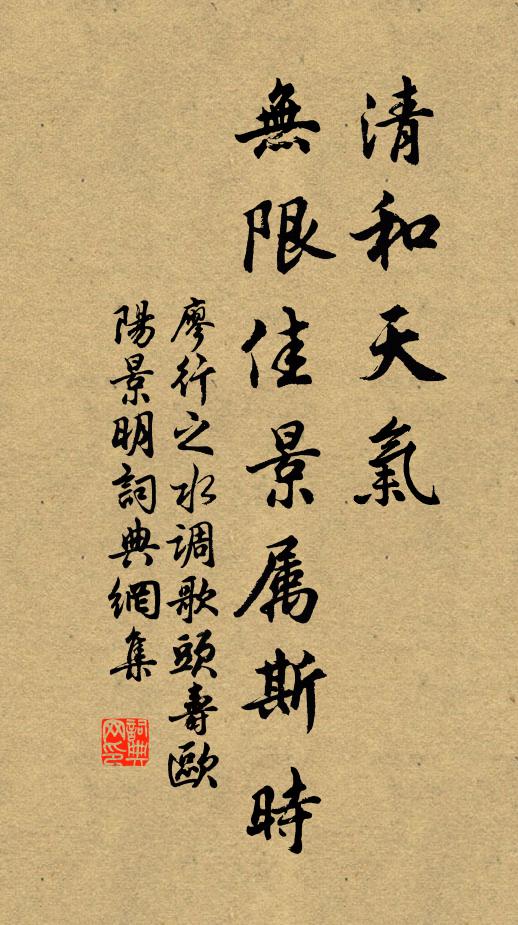 清和天氣
無限佳景属斯時
廖行之水调歌頭壽歐
陽景明詞典網集
詞典网印